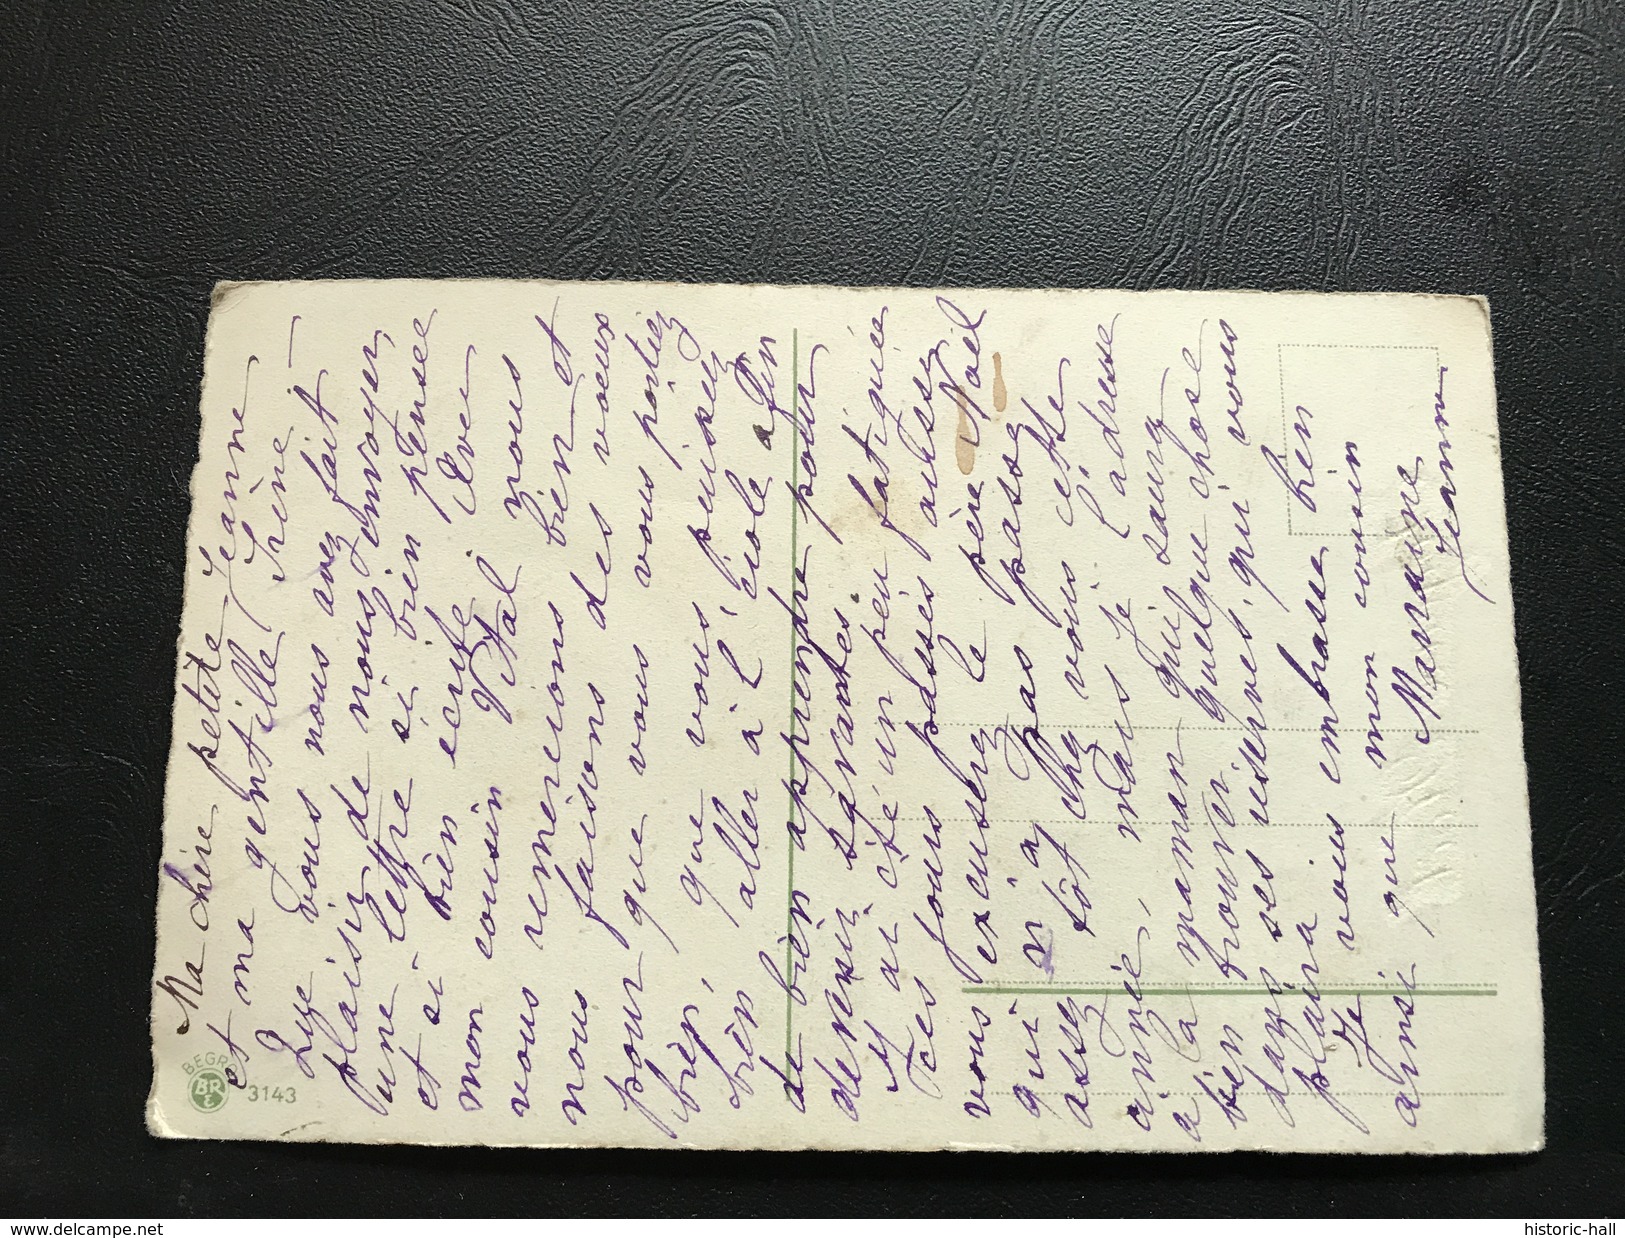 Ma chère petite Jeanne
et ma gentille Irène –
Que vous nous avez fait
plaisir de nous envoyer,
une lettre si bien pensée
et si bien écrite. Avec
mon cousin Vital nous
vous remercions bien et
nous faisons des voeux
pour que vous vous portiez
bien, que vous puissiez
bien aller à l'école afin
de bien apprendre pour
devenir savantes.
J'ai été un peu fatiguée
ces jours passés aussi
vous excuserez le père Noël
qui n'a pas passé
assez tôt chez vous cette
année, mais je l'adresse
à la maman qui saura
bien trouver quelque chose
dans ses réserves, qui vous
plaira
Je vous embrasse bien
ainsi que mon cousin
Marraine
Jeanne
BEGRO
BR
3143
www.delcampe.net
historic-hall